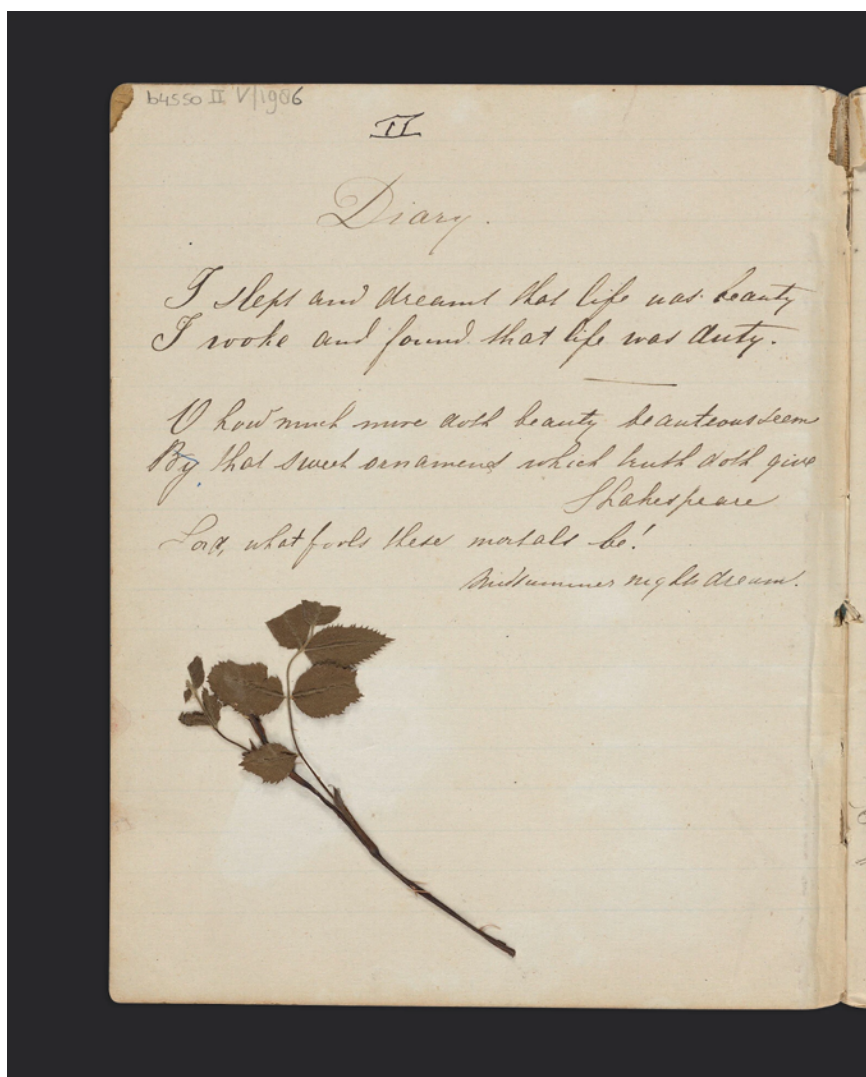 b4550 II V/1986
II
Diary.
I slept and dreamt that life was beauty
I woke and found that life was duty.
O how much more doth beauty beauteous seem
By that sweet ornament which truth doth give
Shakespeare
Lord, what fools these mortals be!
Midsummer nights dream.